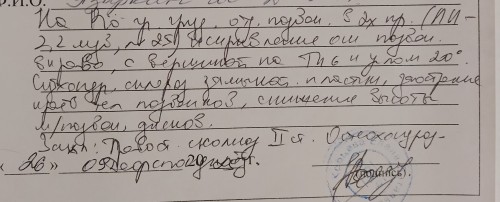 На Rо гр. груд. отд. позвон. в 2х пр. (ПИ-
2,2 мзв, №25) искривление оси позвон.
вправо, с вершиной на Th6 и углом 20°.
Субхондр. склероз замыкат. пластин, заострение
краёв тел позвонков, снижение высоты
м/позвон. дисков.
Закл: Правост. сколиоз II ст. Остеохондроз
«26» 09 20 г.